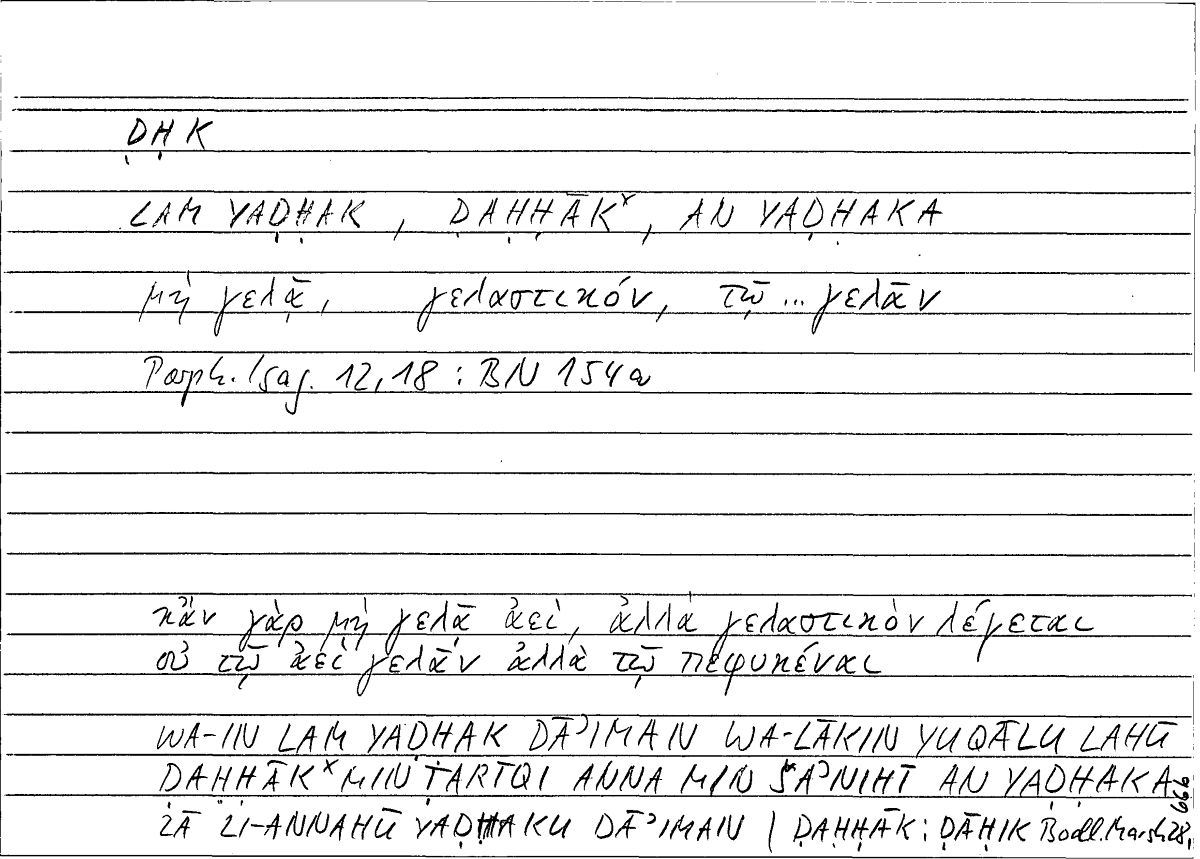 ḌḤK
LAM YAḌḤAK, ḌAḤḤĀKˣ, AN YAḌḤAKA
μὴ γελᾷ, γελαστικόν, τῷ ... γελᾶν
Porph. Isag. 12,18 : BN 154a
κἂν γὰρ μὴ γελᾷ ἀεί, ἀλλὰ γελαστικὸν λέγεται
οὐ τῷ ἀεὶ γελᾶν ἀλλὰ τῷ πεφυκέναι
WA-IN LAM YAḌḤAK DĀʾIMAN WA-LĀKIN YUQĀLU LAHŪ
ḌAḤḤĀKˣ MIN ṬARĪQI ANNA MIN ŠAʾNIHĪ AN YAḌḤAKA
LĀ LI-ANNAHŪ YAḌḤAKU DĀʾIMAN | ḌAḤḤĀK : ḌĀḤIK Bodl. Marsh 28,